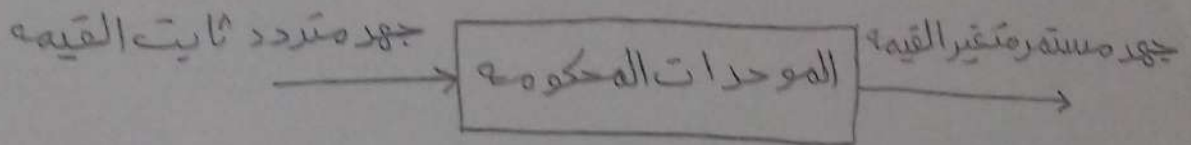 جهد متردد ثابت القيمه
الموحدات المحكومه
جهد مستمر متغير القيمه